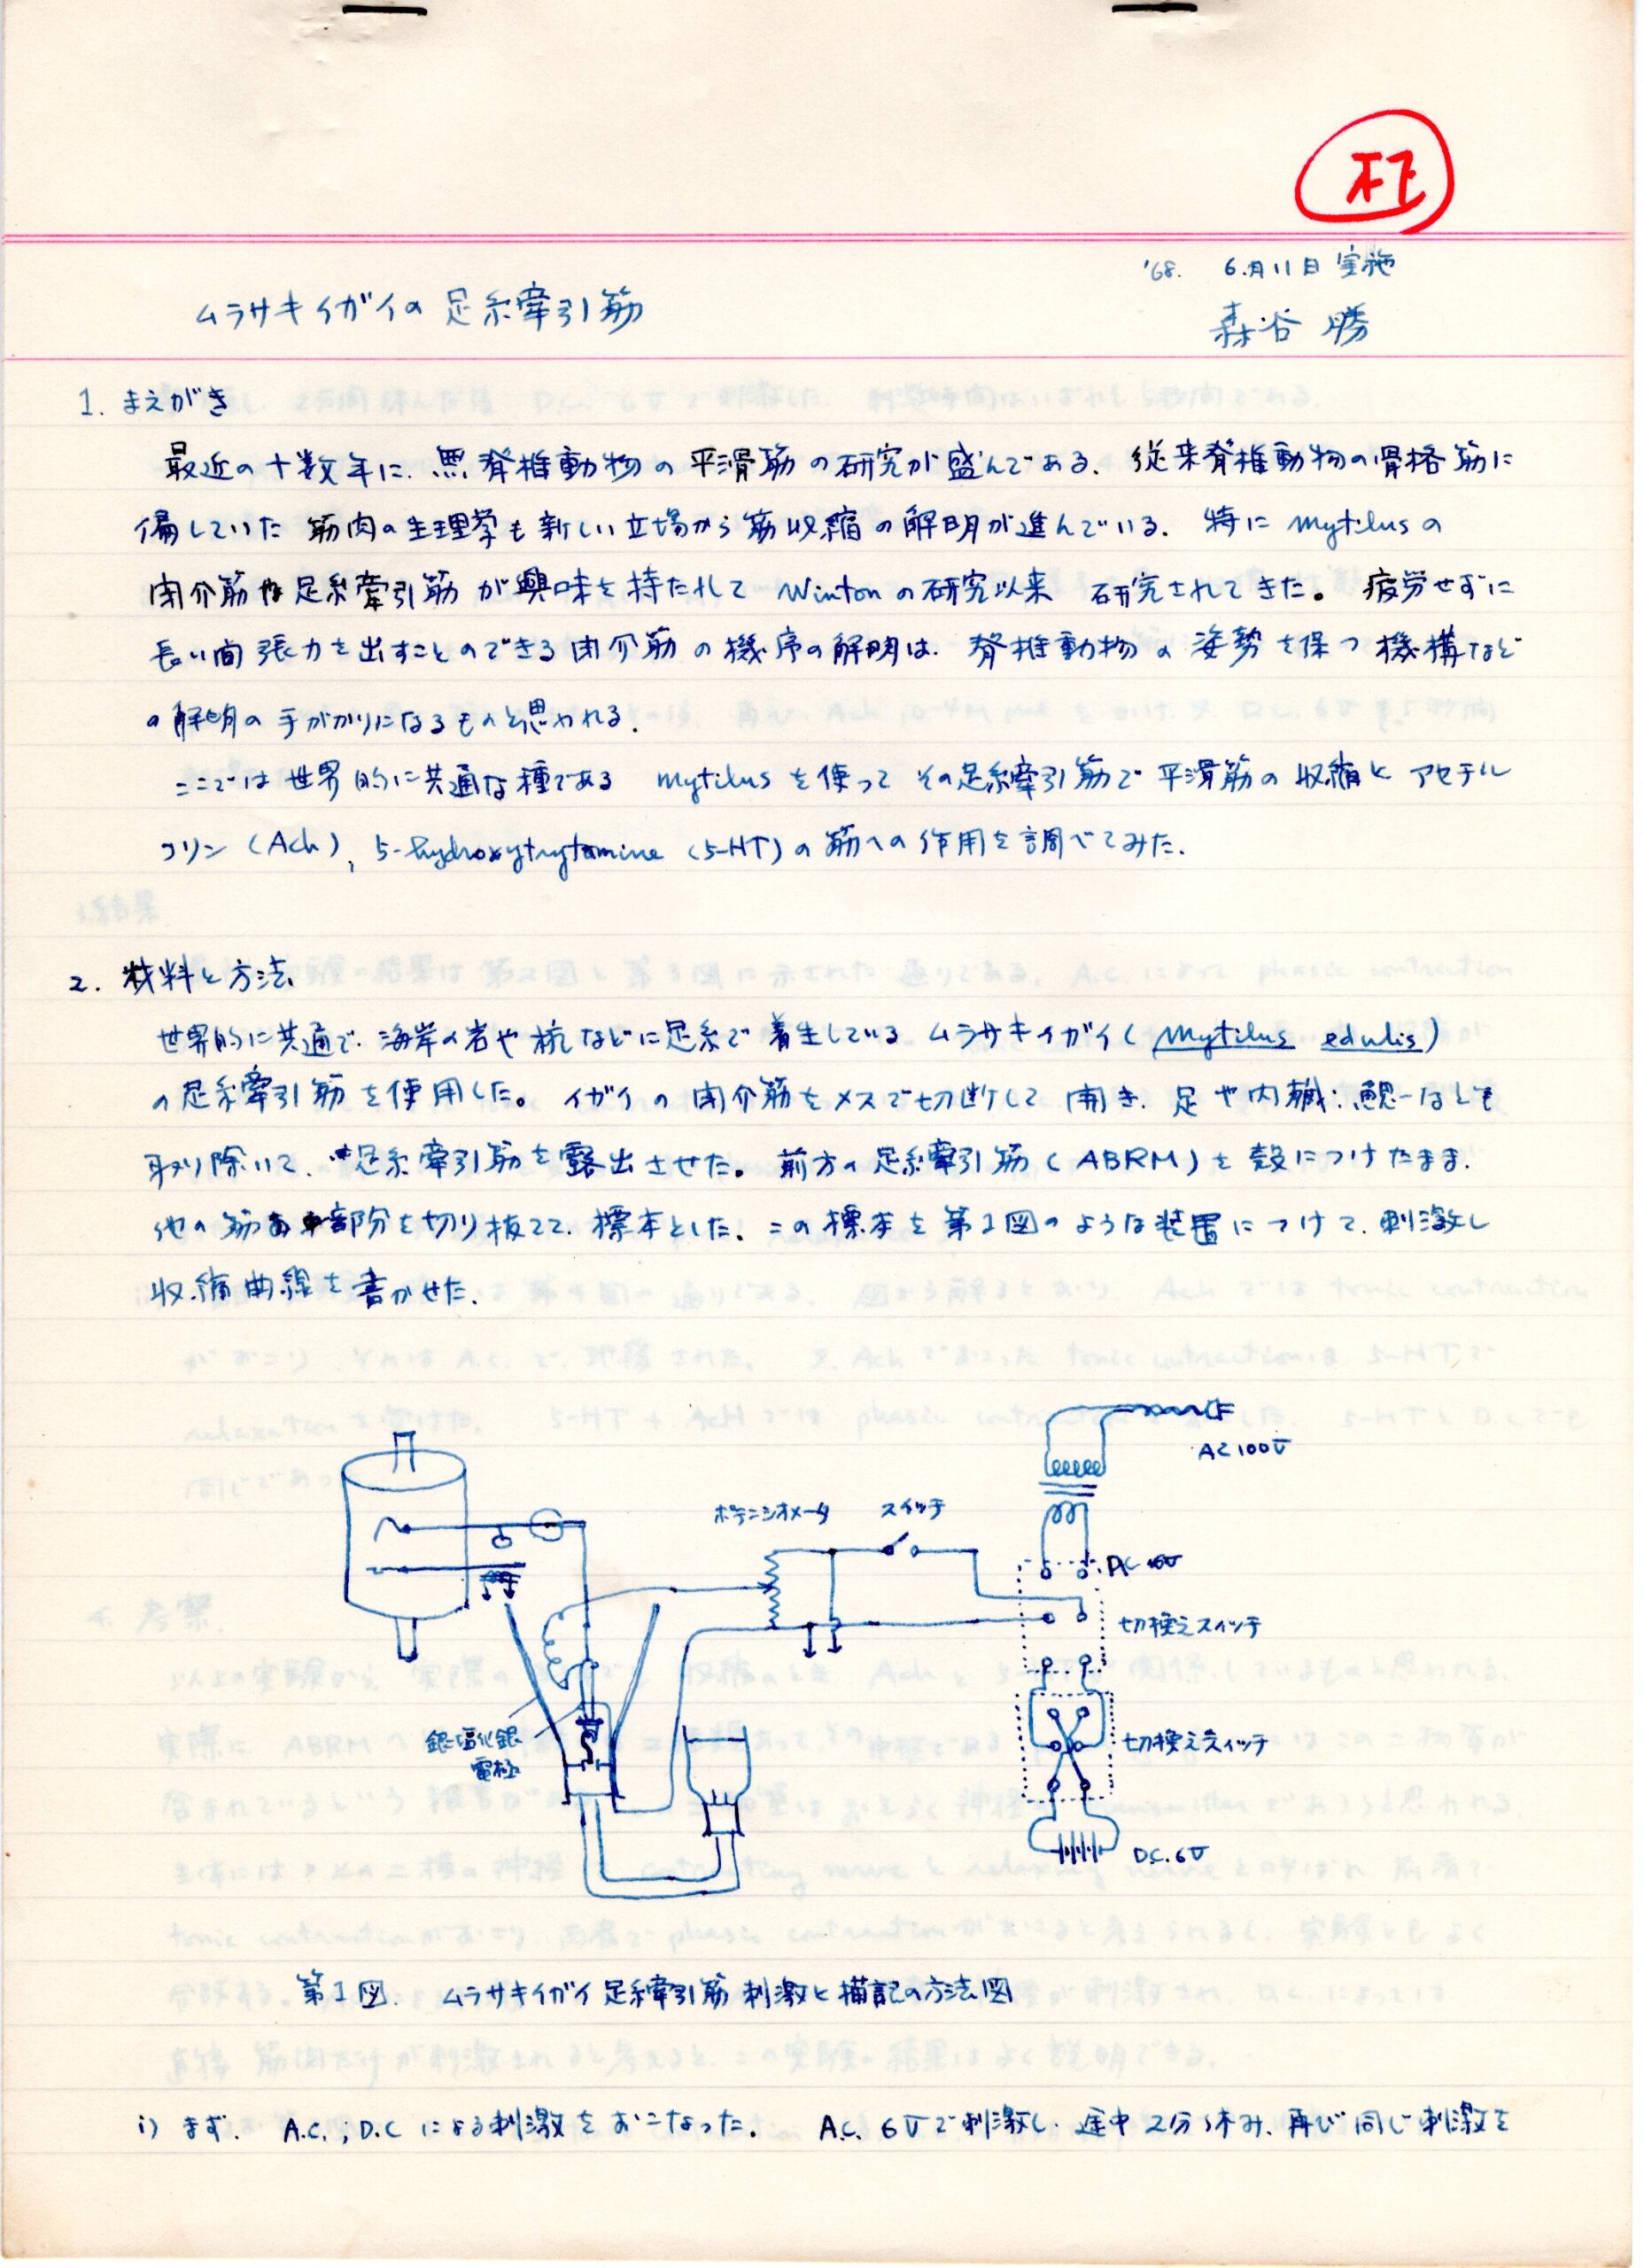 '68. 6月11日 実施
ムラサキイガイの足糸牽引筋
森谷 勝
1. まえがき
最近の十数年に、無脊椎動物の平滑筋の研究が盛んである、従来脊椎動物の骨格筋に
偏していた筋肉の生理学も新しい立場から筋収縮の解明が進んでいる、特に Mytilusの
閉介筋や足糸牽引筋が興味を持たれて Wintonの研究以来 研究されてきた。疲労せずに
長い間張力を出すことのできる閉介筋の機序の解明は、脊椎動物の姿勢を保つ機構など
の解明の手がかりになるものと思われる、
ここでは世界的に共通な種である Mytilusを使って その足糸牽引筋で平滑筋の収縮と アセチル
コリン (Ach), 5-hydroxytrytamine (5-HT)の筋への作用を調べてみた、
2. 材料と方法
世界的に共通で、海岸の岩や杭などに足糸で着生している ムラサキイガイ(Mytilus edulis)
の足糸牽引筋を使用した。イガイの閉介筋をメスで切断して開き、足や内臓、鰓なども
取り除いて、足糸牽引筋を露出させた。前方の足糸牽引筋(ABRM)を殻につけたまま、
他の筋部分を切り捨てて、標本とした、この標本を第1図のような装置につけて、刺激し
収縮曲線を書かせた、
AC 100V
ポテンシオメータ スイッチ
切換えスイッチ
銀塩化銀
電極
切換えスイッチ
D.C. 6V
第1図. ムラサキイガイ足糸牽引筋刺激と描記の方法図
i) まず、A.C.; D.Cによる刺激をおこなった。A.C. 6Vで刺激し、途中2分休み、再び同じ刺激を